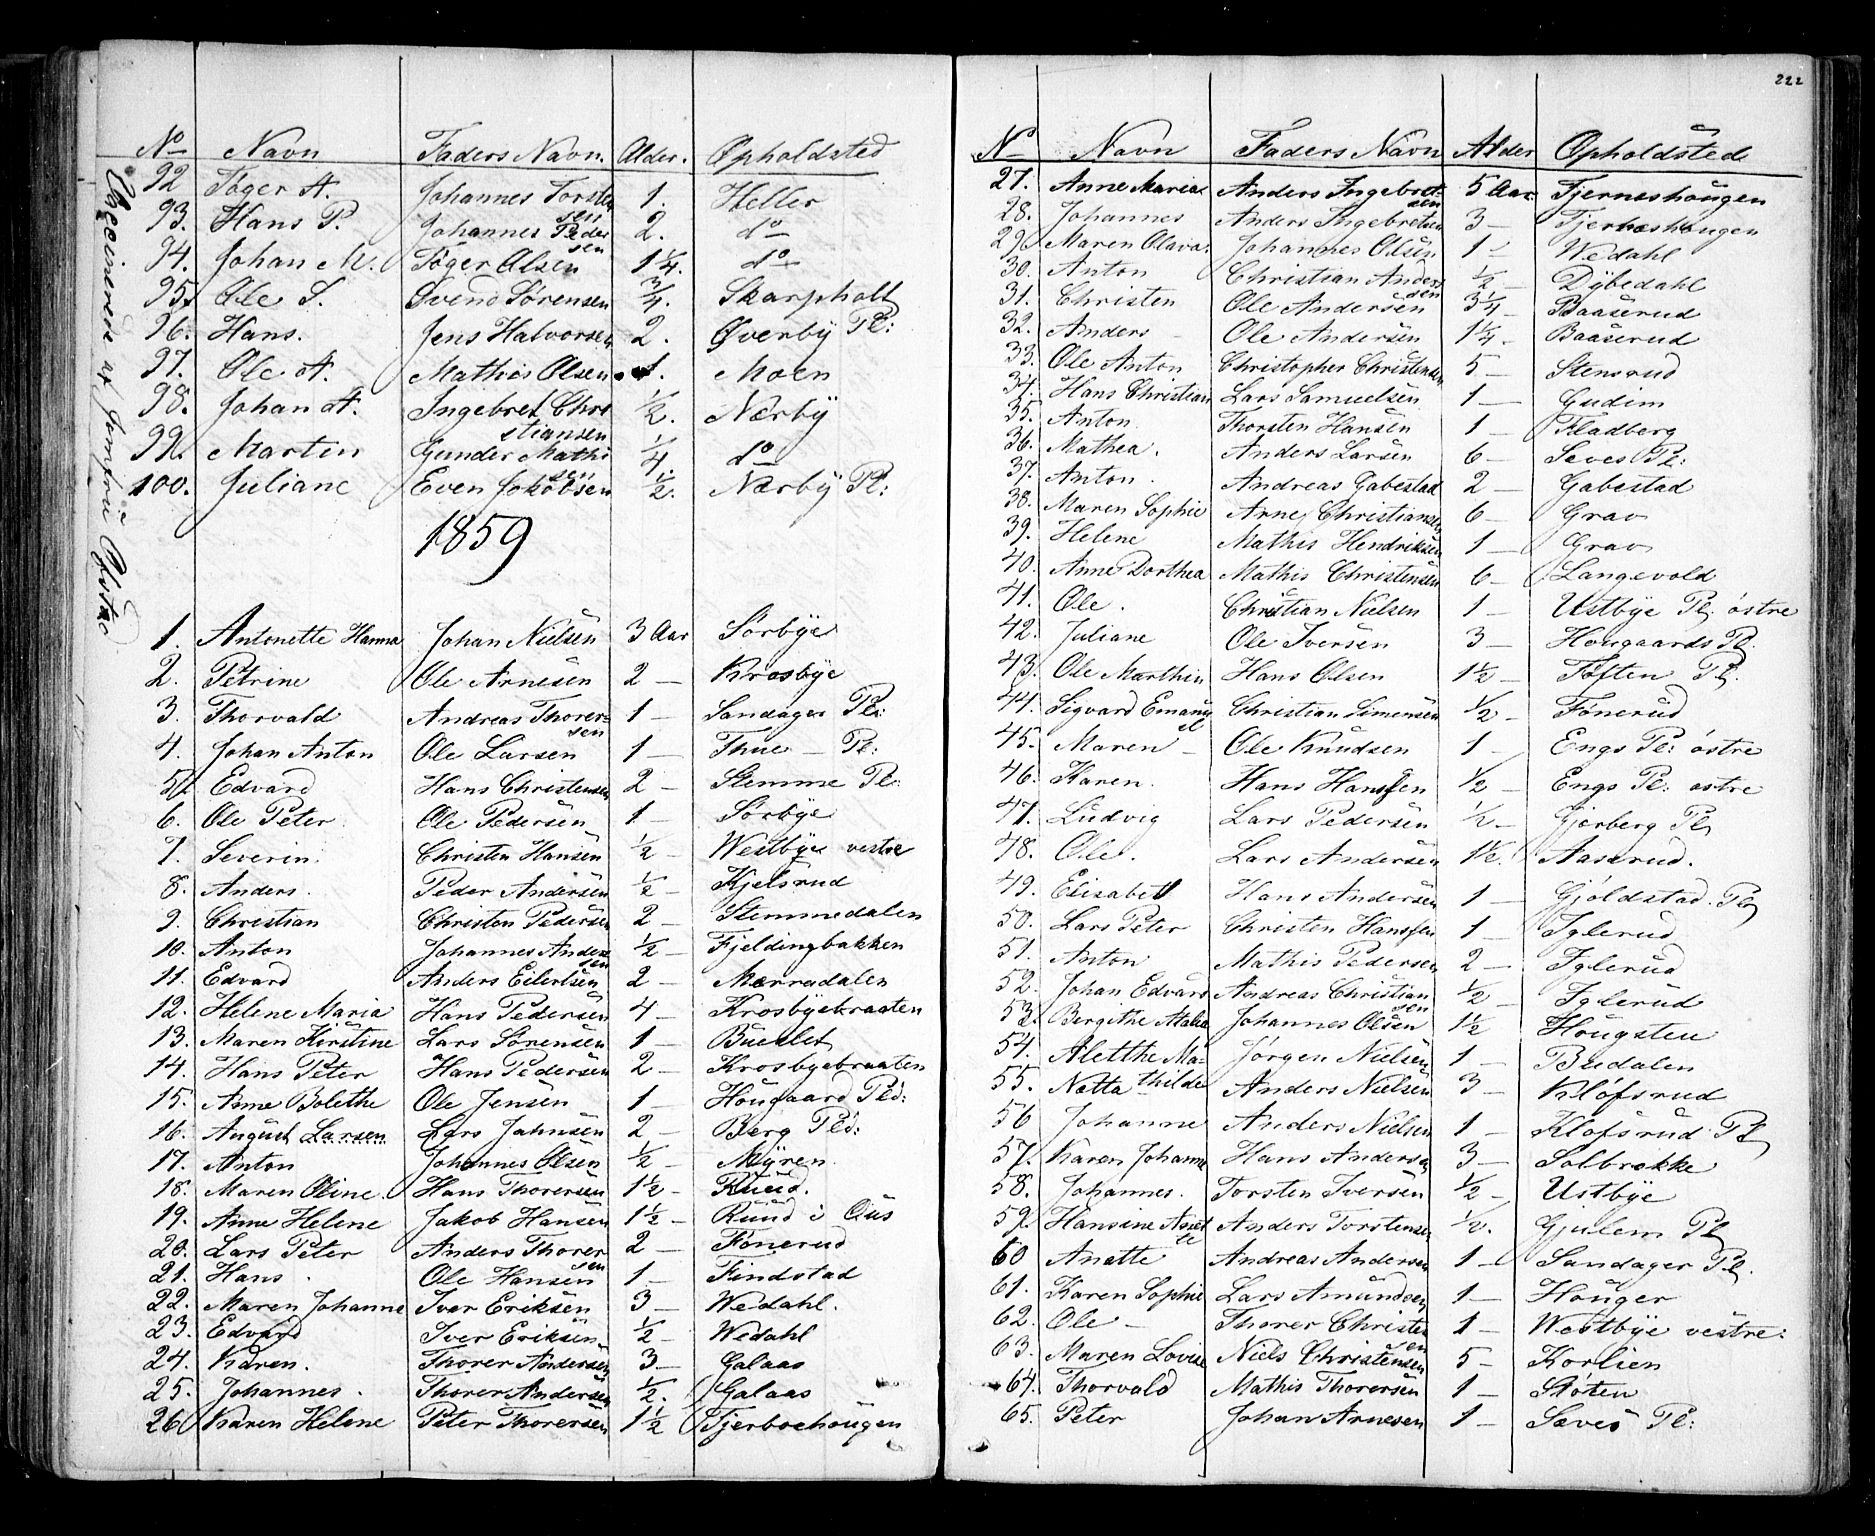 No Navn Faders Navn. Alder. Opholdsted
92 Tøger A. Johannes Torsten
sen 1. Heller
93. Hans P. Johannes Peder
sen 2. do
94. Johan M. Tøger Olsen 1 1/4. do
95. Ole S. Svend Sørensen 3/4. Skarpholt
96. Hans. Jens Halvorsen 2. Øverby Pl:
97. Ole A. Mathis Olsen 1. Moen
98. Johan A. Ingebret Chri
stiansen 1/2. Nærby
99. Martin Gunder Mathi
sen 1/4. do
100. Juliane Even Jokobsen 1/2. Nærby Pl:
Vaccinerede af Jomfru Ofstad
1859
1. Antonette Hanna Johan Nielsen 3 Aar Sørbye
2. Petrine Ole Arnesen 2 — Krosbye
3. Thorvald Andreas Thorer-
sen 1 — Sandager Pl:
4. Johan Anton Ole Larsen 1 — Thue — Pl:
5. Edvard Hans Christensen 2 — Stemme Pl:
6. Ole Peter Ole Pedersen 1 — Sørbye
7. Severin. Christen Hansen 1/2 — Westbye vestre
8. Anders. Peder Andersen 1/2 — Kjelsrud
9. Christian Christen Pedersen 2 — Stemmedalen
10. Anton Johannes Anders
sen 1/2 — Fjeldingbakken
11. Edvard Anders Eilertsen 2 — Mærradalen
12. Helene Maria Hans Pedersen 4 — Krosbyebraaten
13. Maren Kirstine Lars Sørensen 1 — Buerlet
14. Hans Peter Hans Pedersen 2 — Krosbyebraaten
15. Anne Bolethe Ole Jensen 1 — Hougaard Pld:
16. August Larsen Lars Jahnsen 2 — Berg Pld:
17. Anton Johannes Olsen 1/2 — Myren
18. Maren Oline. Hans Thorersen 1 1/2 — Ruud.
19. Anne Helene Jakob Hansen 1 1/2 — Ruud i Ous
20. Lars Peter Anders Thorer
sen 2 — Fønerud
21. Hans. Ole Hansen 1 — Findstad
22. Maren Johanne Iver Eriksen 3 — Wedahl.
23. Edvard Iver Eriksen. 1/2 — Wedahl
24. Karen. Thorer Andersen 3 — Galaas
25. Johannes. Thorer Andersen 1/2. Galaas
26 Karen Helene Peter Thorersen 1 1/2 Tjerboehougen
222
No Navn Faders Navn Alder Opholdsted
27. Anne Maria Anders Ingebret-
sen 5 Aar. Tjerneshougen
28. Johannes Anders Ingebretsen 3 — Tjerneshougen
29. Maren Olava. Johannes Olsen 1 — Wedahl
30. Anton Christian Anders
sen 1/2 — Dybedahl
31. Christen Ole Andersen 3 1/4 — Baaserud
32. Anders Ole Andersen 1 1/4. Baaserud
33. Ole Anton Christopher Christensen 5 — Stensrud
34. Hans Christian Lars Samuelsen 1 — Gudim
35. Anton. Thorsten Hansen 1 — Fladberg
36. Mathea. Anders Larsen 6 — Seves Pl:
37. Anton. Andreas Gabestad 2 — Gabestad
38. Maren Sophie Arne Christiansen 6 — Grav
39. Helene Mathis Hendriksen 1 — Grav
40. Anne Dorthea Mathis Christensen 6 — Langevold
41. Ole. Christian Nielsen 1 — Ustbye Pl. østre
42. Juliane Ole Iversen 3 — Hougaards Pl.
43. Ole Marthin Hans Olsen 1 1/2 — Toften Pl.
44. Sigvard Emanu
el Christian Simensen 1/2 — Fønerud
45. Maren — Ole Knudsen 1 — Engs Pl: østre
46. Karen. Hans Hanssen 1/2 — Engs Pl: østre
47. Ludvig Lars Pedersen 1/2 — Gjerberg Pl
48. Ole. Lars Andersen 1 1/2. Aaserud.
49. Elisabeth Hans Andersen 1 — Gjøldstad. Pl
50. Lars Peter Christen Hanssen 1 — Iglerud
51. Anton Mathis Pedersen 2 — Iglerud
52. Johan Edvard Andreas Christian
sen 1/2 — Iglerud
53. Bergithe Malea Johannes Olsen 1 1/2 Hougsten
54. Aletthe Ma-
thilde Jørgen Nielsen 1 — Budalen
55. Netta Anders Nielsen 3 — Kløfsrud
56 Johanne Anders Nielsen 1 — Kløfsrud Pl
57. Karen Johanne Hans Andersen 3 — Solbrække
58. Johannes. Torsten Iversen 1/2 — Ustbye
59. Hansine Anet
te Anders Torstensen 1/2. Gjulem Pl
60 Anette Andreas Andersen 1 — Sandager Pl.
61. Karen Sophie Lars Amundsen 1 — Houger
62. Ole — Thorer Christen
sen 1 — Westbye vestre:
63. Maren Lovise Niels Christensen 5 — Korlien
64. Thorvald Mathis Thorersen 1 — Støten
65. Peter Johan Arnesen 1 — Sæves Pl: